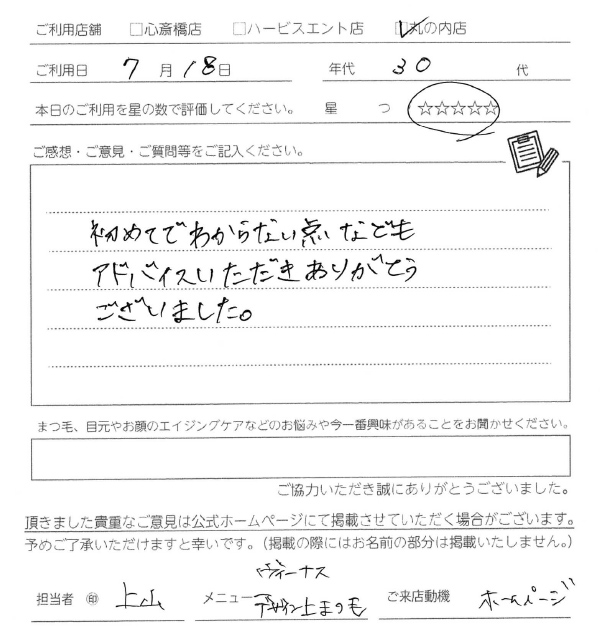 ご利用店舗 □心斎橋店 □ハービスエント店 ☑丸の内店
ご利用日 7 月 18 日 年代 30 代
本日のご利用を星の数で評価してください。 星 つ ☆☆☆☆☆
ご感想・ご意見・ご質問等をご記入ください。
初めてでわからない点なども
アドバイスいただきありがとう
ございました。
まつ毛、目元やお顔のエイジングケアなどのお悩みや今一番興味があることをお聞かせください。
ご協力いただき誠にありがとうございました。
頂きました貴重なご意見は公式ホームページにて掲載させていただく場合がございます。
予めご了承いただけますと幸いです。（掲載の際にはお名前の部分は掲載いたしません。）
ヴィーナス
担当者 ㊞ 上山 メニュー デザイン上まつ毛 ご来店動機 ホームページ